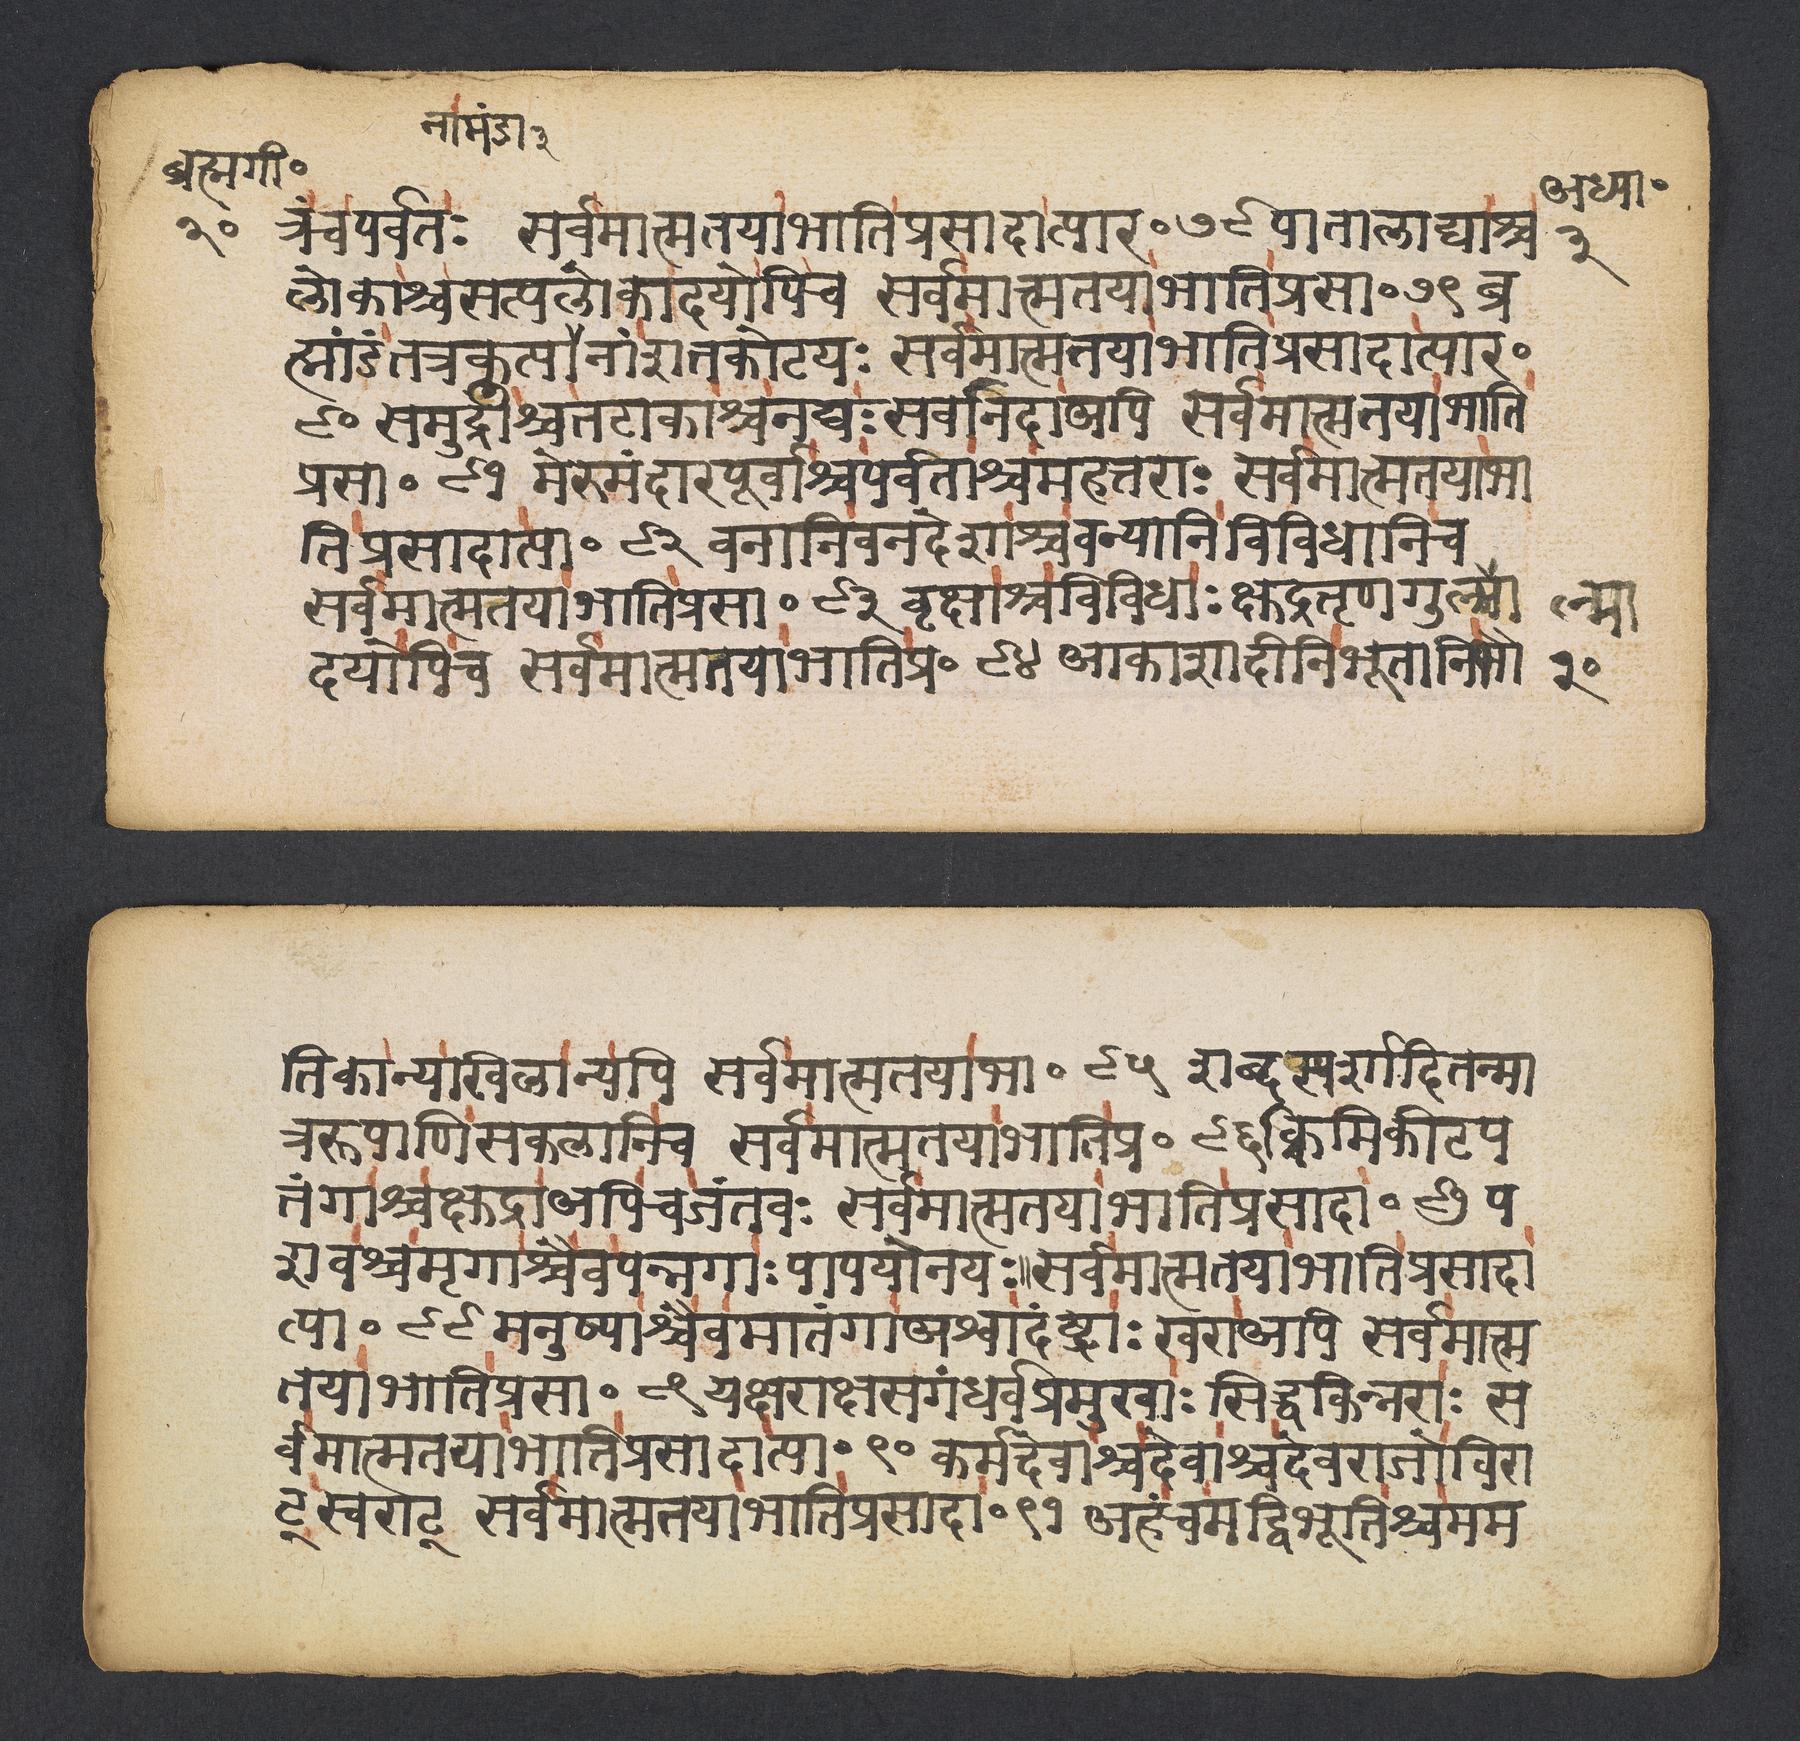 नामंडा३
ब्रह्मगी॰
अध्या॰
२॰ त्रंचपर्वतः सर्वमात्मतयाभातिप्रसादात्पार॰७८पातालाद्याश्च ३
लोकाश्चसत्यलोकादयोपिच सर्वमात्मतयाभातिप्रसा॰७९ब्र
ह्मांडंतत्रकृत्पानांशतकोटयः सर्वमात्मतयाभातिप्रसादात्पार॰
८० समुद्राश्चतटाकाश्चनद्यःसर्वानदाअपि सर्वमात्मतयाभाति
प्रसा॰ ८१ मेरुमंदारपूर्वाश्चपर्वताश्चमहत्तराः सर्वमात्मतयाभा
तिप्रसादात्पा॰ ८२ वनानिवनदेशाश्चवन्यानिविविधानिच
सर्वमात्मतयाभातिप्रसा॰ ८३ वृक्षाश्चविविधाःक्षुद्रतृणगुल्मा ल्मा
दयोपिच सर्वमात्मतयाभातिप्र॰ ८४ आकाशादीनिभूतानिभौ २०
तिकान्यखिलान्यपि सर्वमात्मतयाभा॰ ८५ शब्दस्पर्शादितन्मा
त्ररूपाणिसकलानिच सर्वमात्मतयाभातिप्र॰ ८६क्रिमिकीटप
तंगाश्चक्षुद्राअपिचजंतवः सर्वमात्मतयाभातिप्रसादा॰ ८७ प
शवश्चमृगाश्चैवपन्नगाःपापयोनयः॥सर्वमात्मतयाभातिप्रसादा
त्पा॰ ८८ मनुष्याश्चैवमातंगाअश्वादंष्ट्राःखराअपि सर्वमात्म
तयाभातिप्रसा॰ ८९ यक्षराक्षसगंधर्वप्रमुखाःसिद्धकिन्नराः स
र्वमात्मतयाभातिप्रसादात्पा॰ ९० कर्मदेवाश्चदेवाश्चदेवराजोविरा
ट्स्वराट् सर्वमात्मतयाभातिप्रसादा॰९१ अहंचमद्विभूतिश्चमम